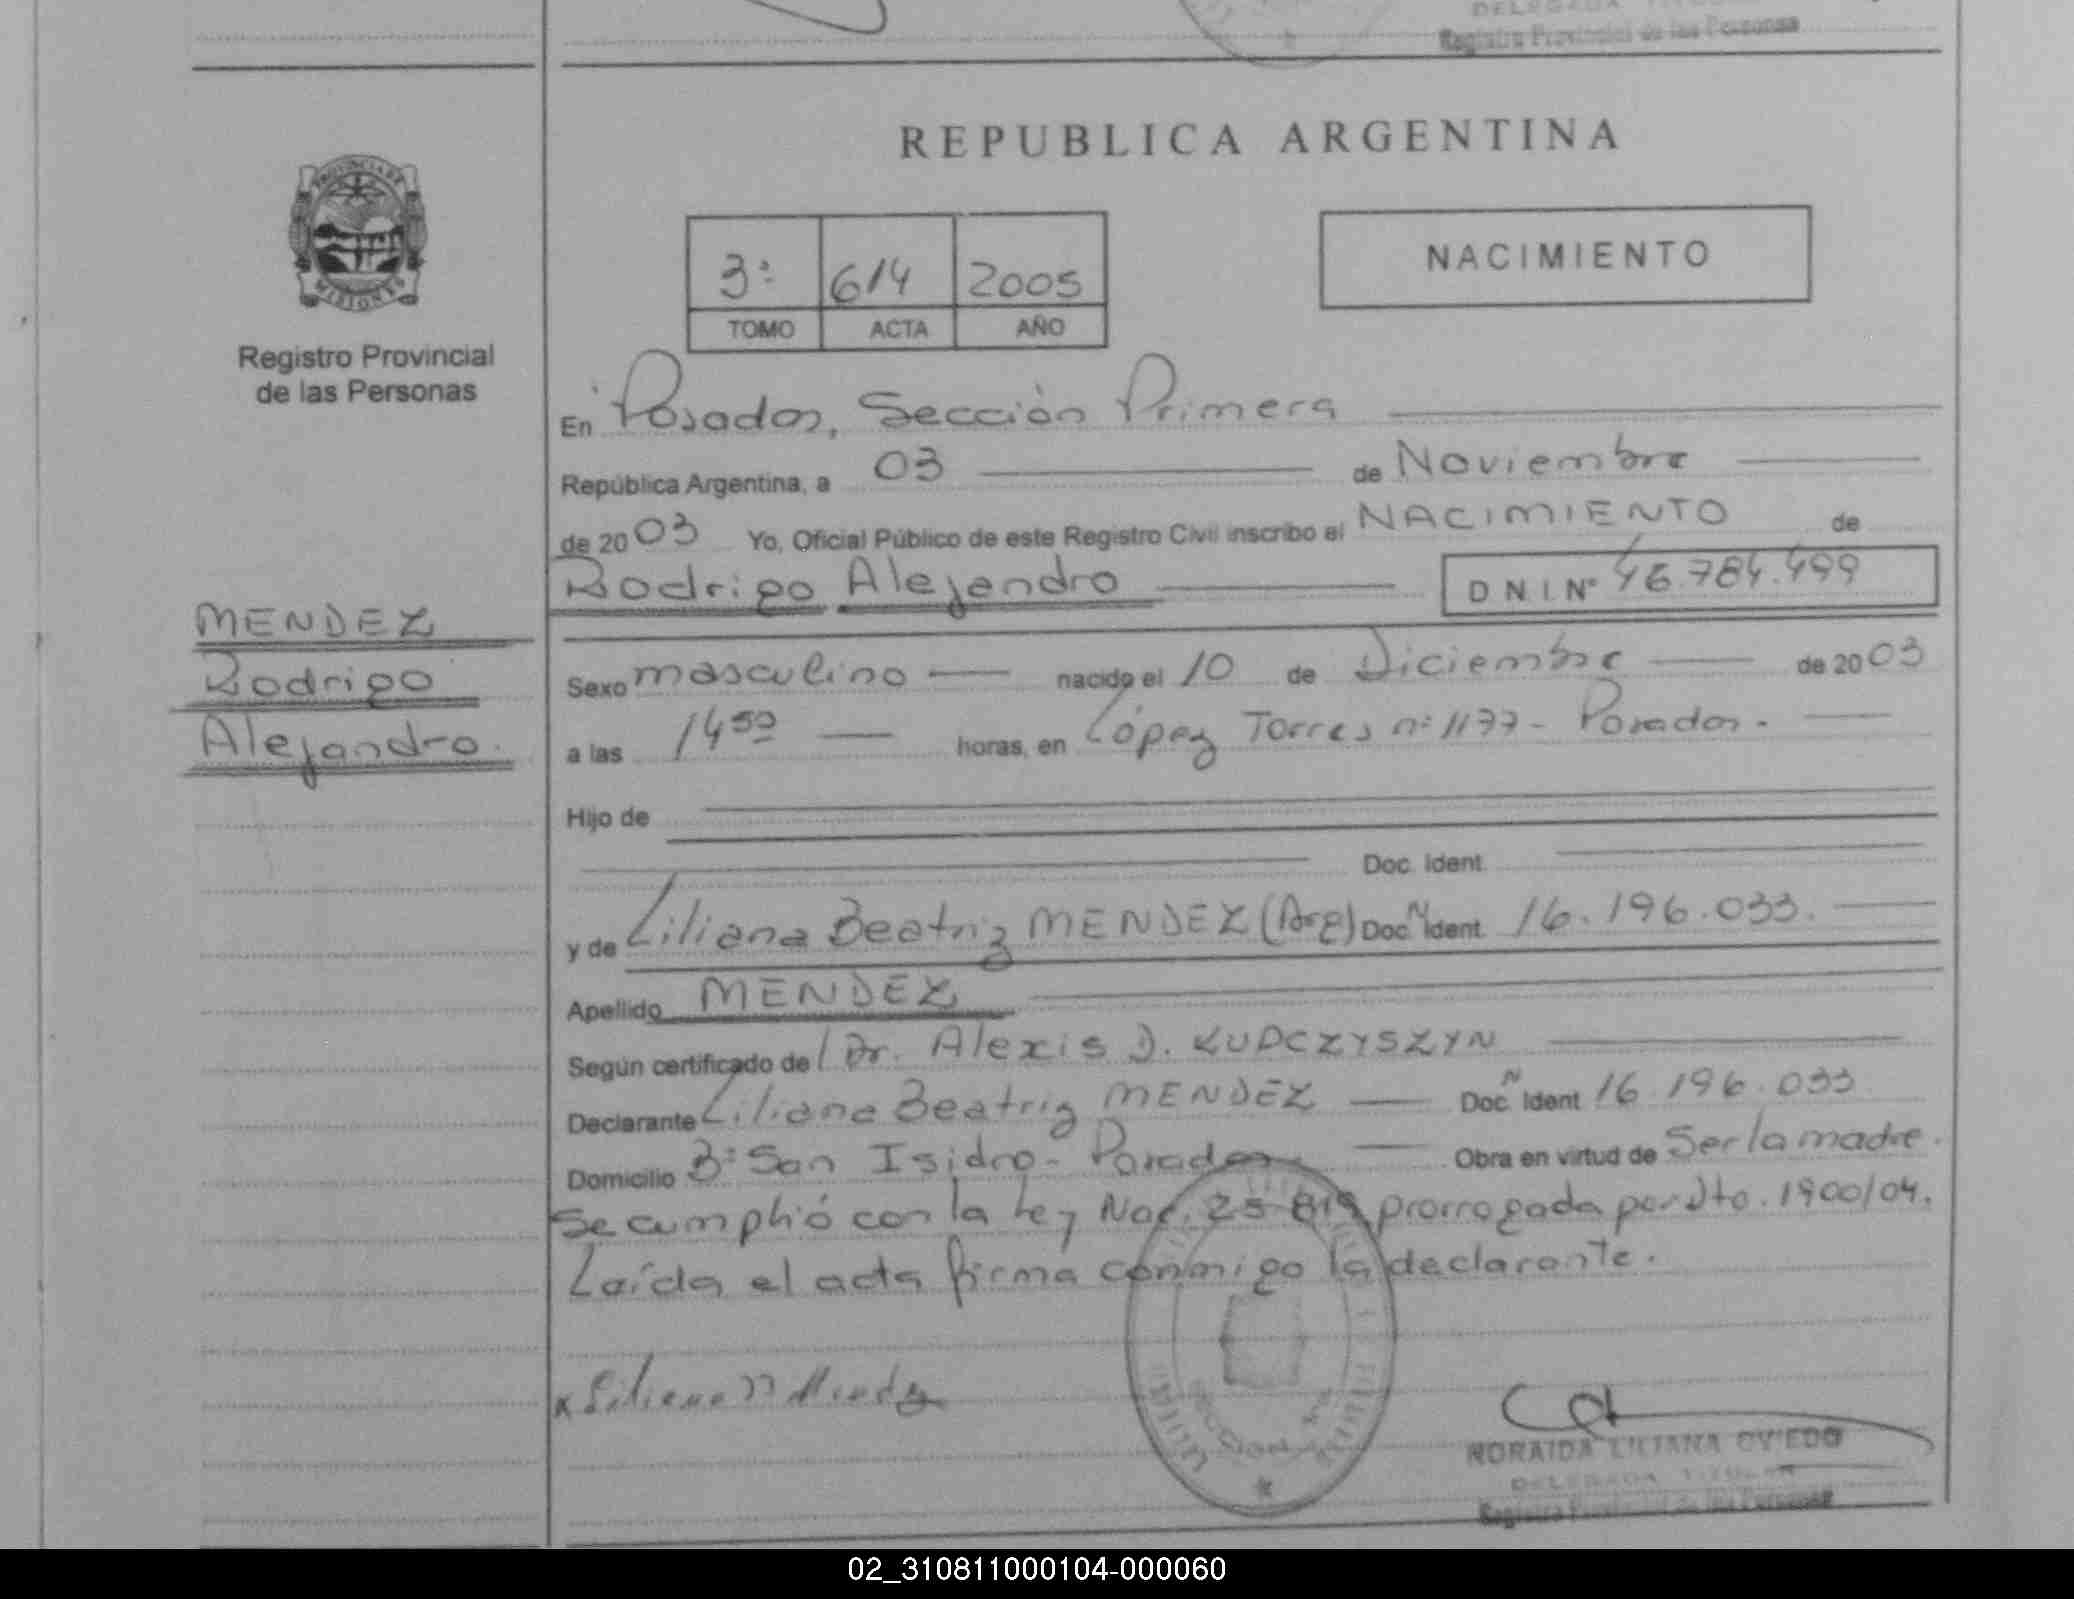 DELEGADA TITULAR
Registro Provincial de las Personas
PROVINCIA DE
MISIONES
Registro Provincial
de las Personas
REPUBLICA ARGENTINA
3º 614 2005
TOMO ACTA AÑO
NACIMIENTO
En Posadas, Sección Primera
República Argentina, a 03 de Noviembre
de 2003 Yo, Oficial Público de este Registro Civil inscribo el NACIMIENTO de
Rodrigo Alejandro D N I Nº 46.784.499
MENDEZ
Rodrigo
Alejandro.
Sexo masculino nacido el 10 de Diciembre de 2003
a las 14 50 horas, en López Torres nº 1177 - Posadas.
Hijo de
Doc. Ident.
y de Liliana Beatriz MENDEZ (Arg) Doc. N Ident. 16.196.033.
Apellido MENDEZ
Según certificado de Dr. Alexis D. KUPCZYSZYN
Declarante Liliana Beatriz MENDEZ Doc. N Ident 16.196.033
Domicilio Bº San Isidro - Posadas. Obra en virtud de Ser la madre.
Se cumplió con la Ley Nac. 25 819 prorrogada por Dto. 1900/04.
Laída el acta firma conmigo la declarante.
NORAIDA LILIANA OVIEDO
DELEGADA TITULAR
Registro Provincial de las Personas
02_310811000104-000060